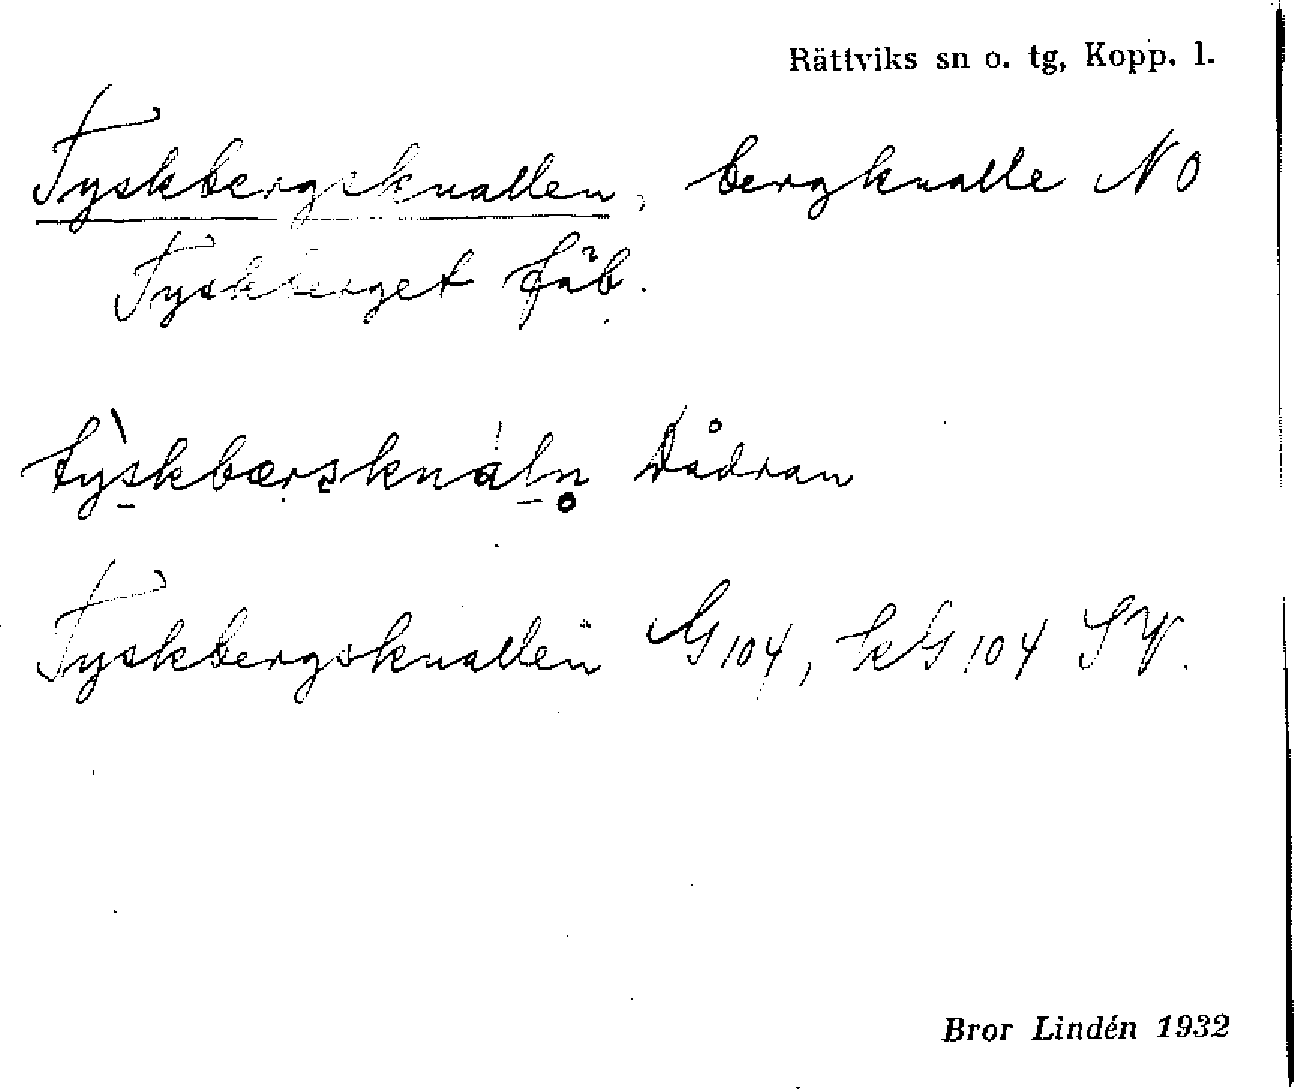 Rättviks sn o. tg, Kopp. l.
Tyskbergsknallen, bergknalle NO
Tyskberget fäb.
tỳskbærsknáln̥ Dådran
Tyskbergsknallen G104, kG104 SV.
Bror Lindén 1932